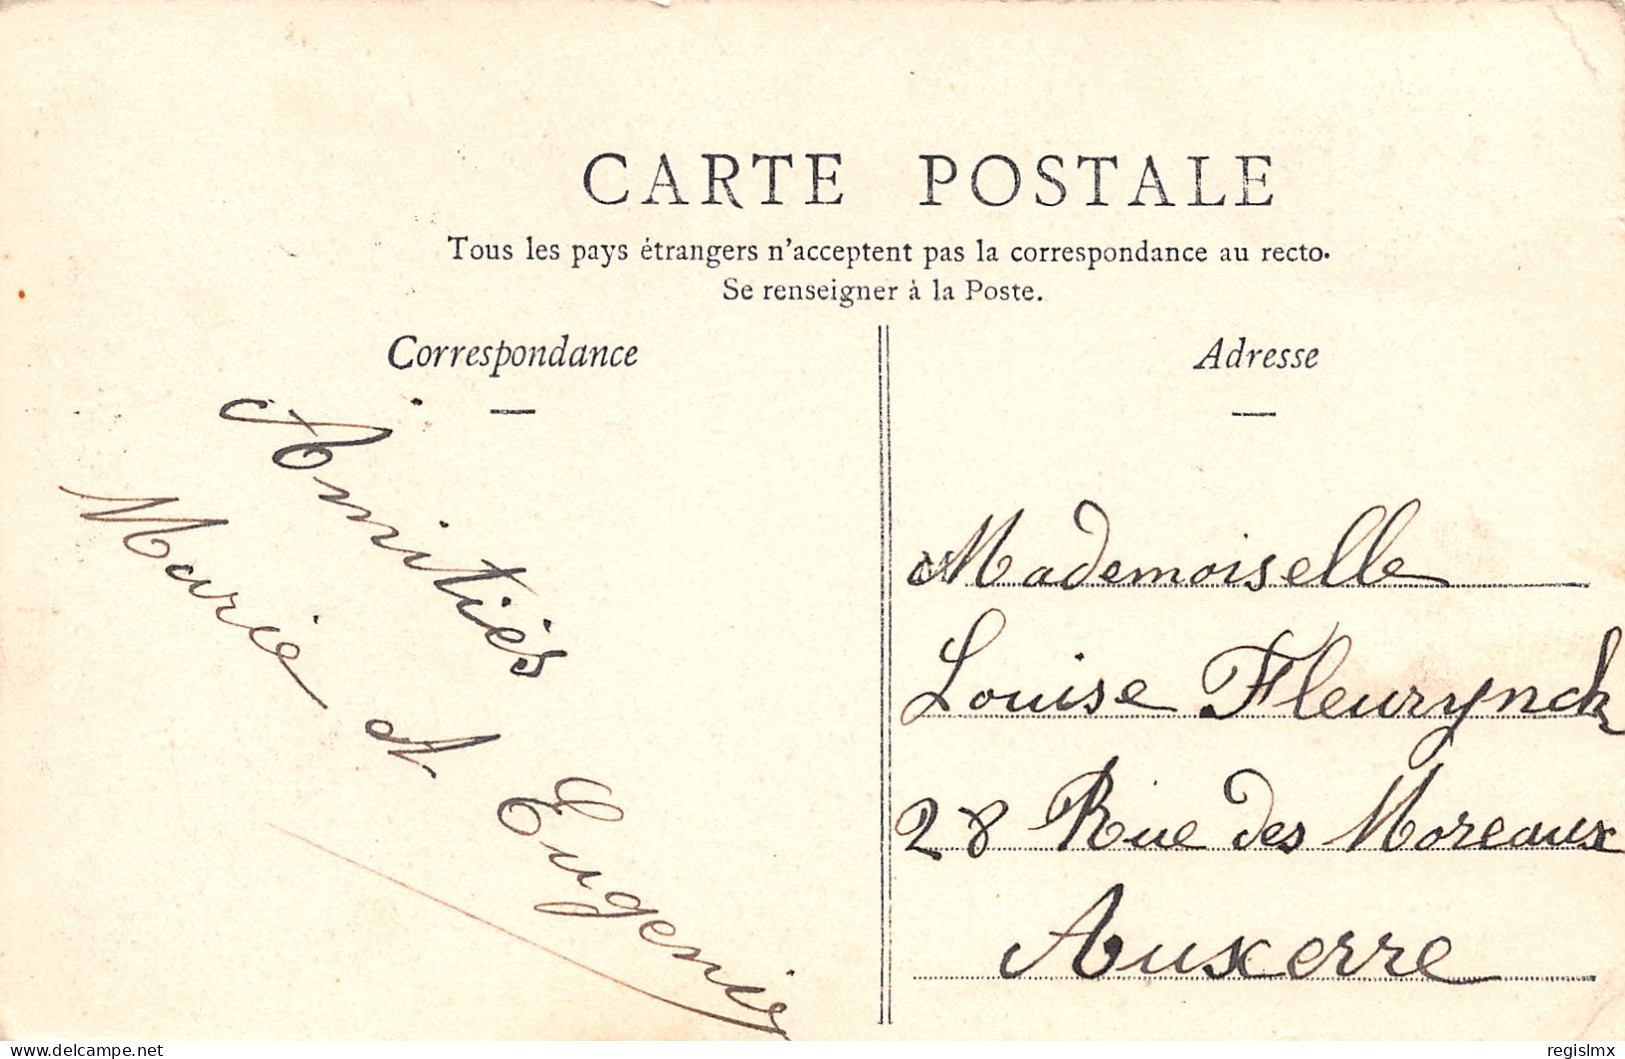 CARTE POSTALE
Tous les pays étrangers n'acceptent pas la correspondance au recto.
Se renseigner à la Poste.
Correspondance
Amitiés
Marie et Eugenie
Adresse
Mademoiselle
Louise Fleurynck
28 Rue des Moreaux
Auxerre
www.delcampe.net
regislmx